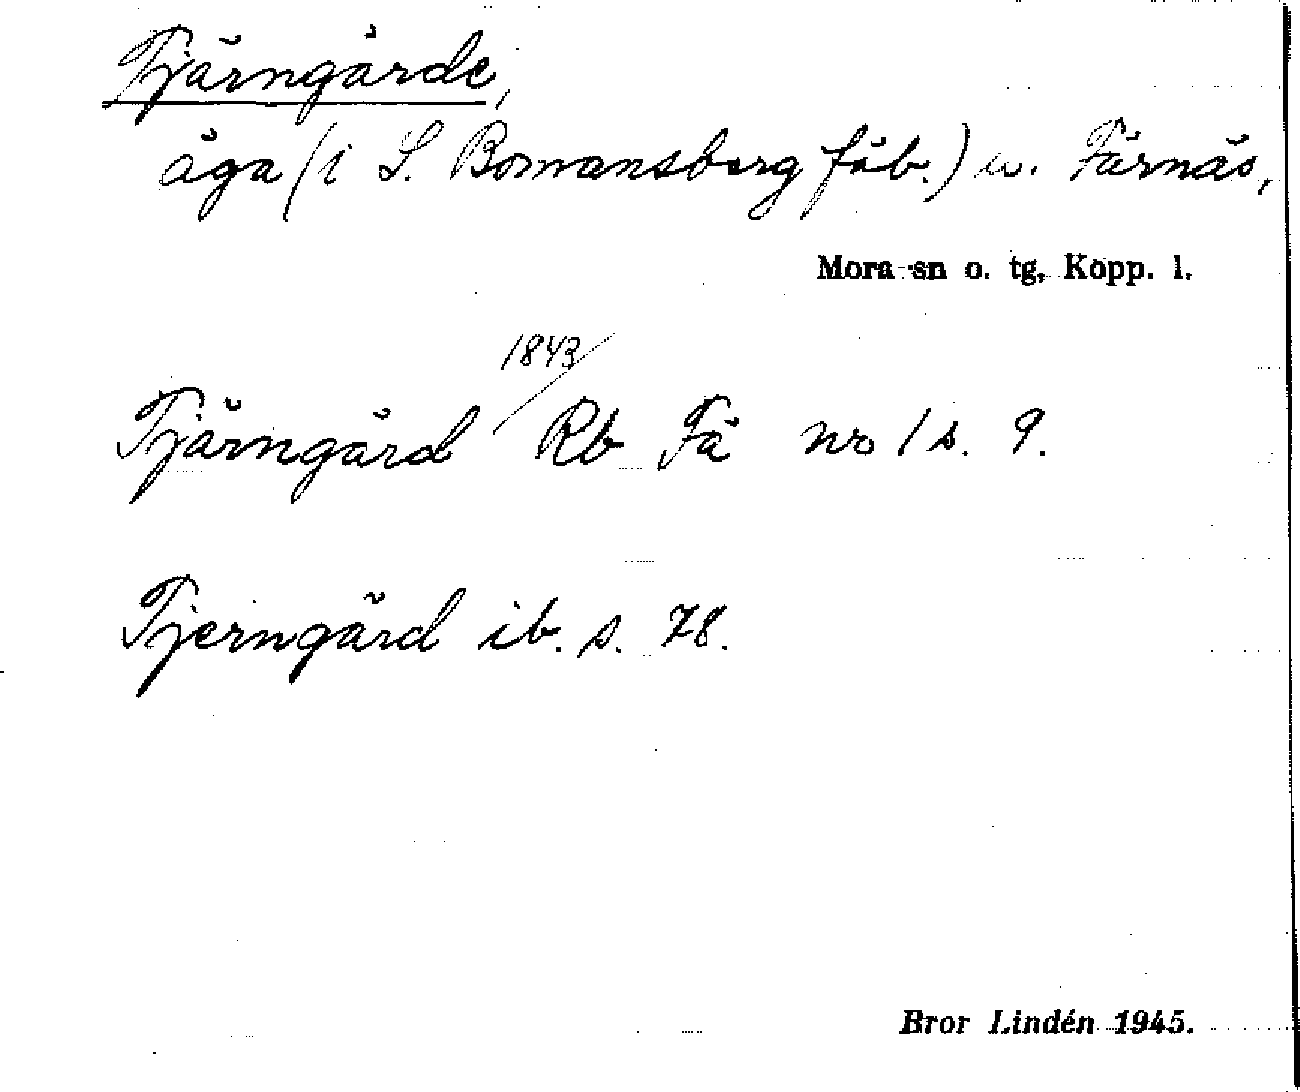 Tjärngärde,
äga (i S. Bomansberg fäb.) u. Färnäs,
Mora sn o. tg, Kopp. l.
1843/
Tjärngärd Rb Fä nro 1 s. 9.
Tjerngärd ib. s. 78.
Bror Lindén 1945.